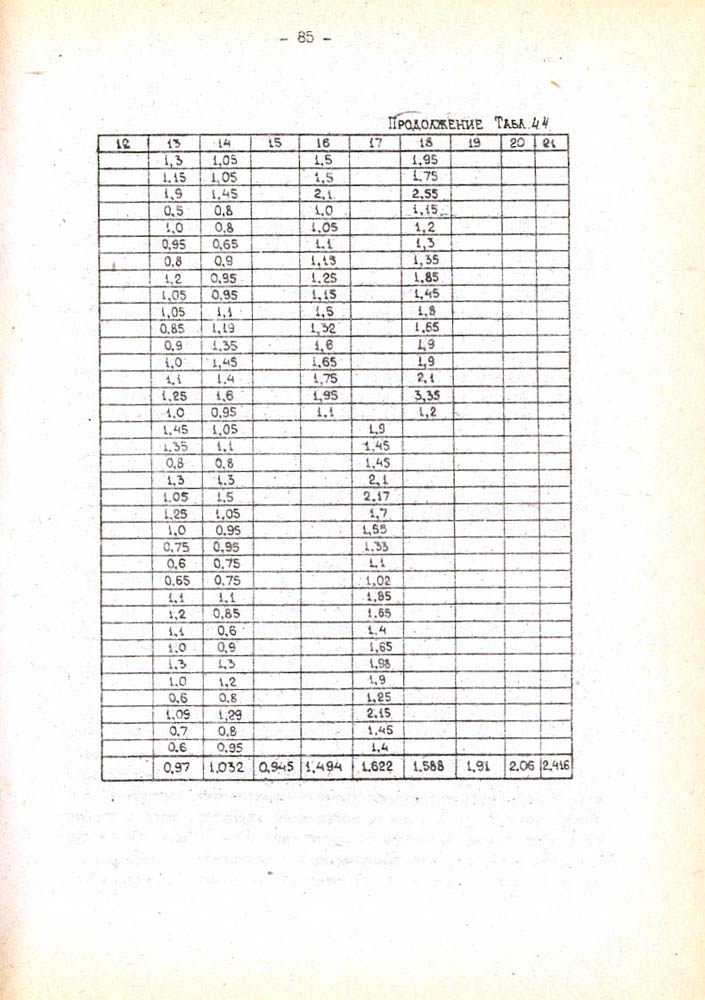 - 85 -
ПРОДОЛЖЕНИЕ ТАБЛ. 4.4
12 13 14 15 16 17 18 19 20 21
1,3 1,05 1,5 1,95
1,15 1,05 1,5 1,75
1,9 1,45 2,1 2,55
0,5 0,8 1,0 1,15
1,0 0,8 1,05 1,2
0,95 0,65 1,1 1,3
0,8 0,9 1,15 1,35
1,2 0,95 1,25 1,85
1,05 0,95 1,15 1,45
1,05 1,1 1,5 1,8
0,85 1,19 1,32 1,65
0,9 1,35 1,6 1,9
1,0 1,45 1,65 1,9
1,1 1,4 1,75 2,1
1,25 1,6 1,95 3,35
1,0 0,95 1,1 1,2
1,45 1,05 1,9
1,35 1,1 1,45
0,8 0,8 1,45
1,3 1,3 2,1
1,05 1,5 2,17
1,25 1,05 1,7
1,0 0,95 1,55
0,75 0,95 1,33
0,6 0,75 1,1
0,65 0,75 1,02
1,1 1,1 1,85
1,2 0,85 1,65
1,1 0,6 1,4
1,0 0,9 1,65
1,3 1,3 1,98
1,0 1,2 1,9
0,6 0,8 1,25
1,05 1,29 2,15
0,7 0,8 1,45
0,6 0,95 1,4
0,97 1,032 0,945 1,494 1,622 1,588 1,91 2,06 2,416